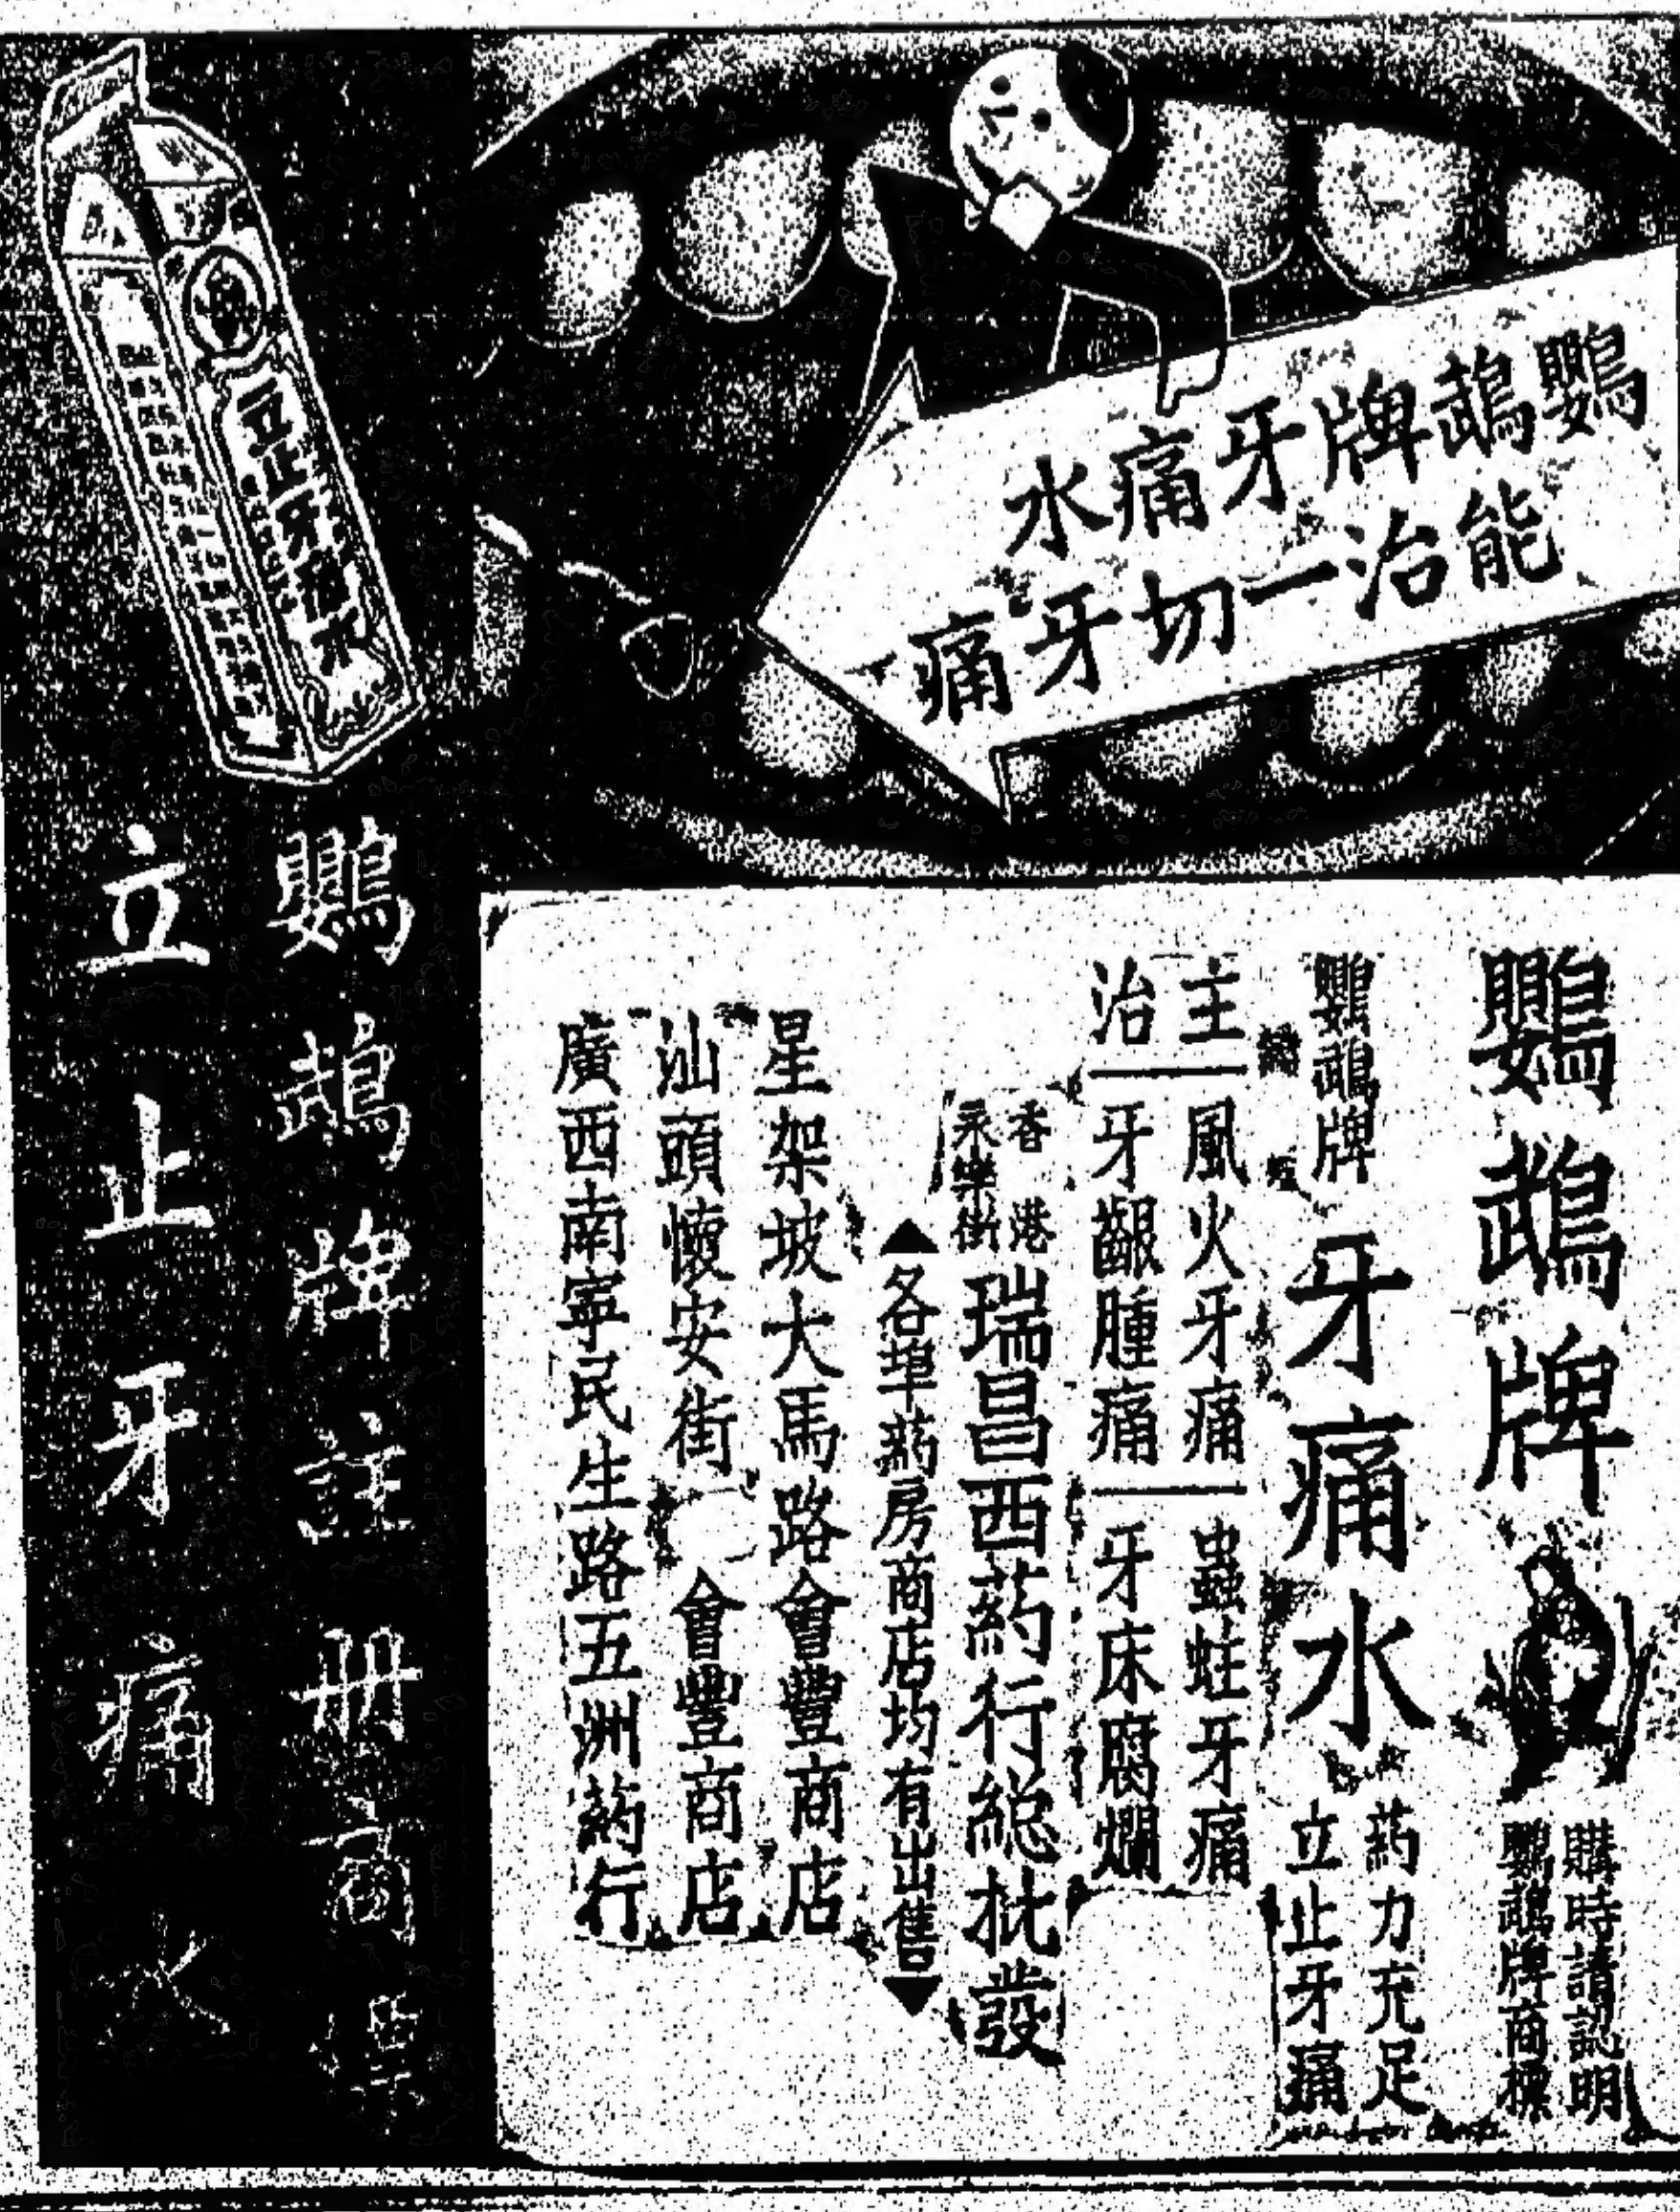 鸚鵡牌牙痛水
能治一切牙痛
鸚鵡牌
購時請認明
鸚鵡牌商標
鸚鵡牌
牙痛水
葯力充足
立止牙痛
主治
風火牙痛
牙齦腫痛
蟲蛀牙痛
牙床腐爛
香港
永樂街
瑞昌西葯行總批發
各埠葯房商店均有出售
星架坡大馬路會豐商店
汕頭懷安街會豐商店
廣西南寧民生路五洲葯行
立止牙痛水
鸚鵡牌註册商標
立止牙痛水